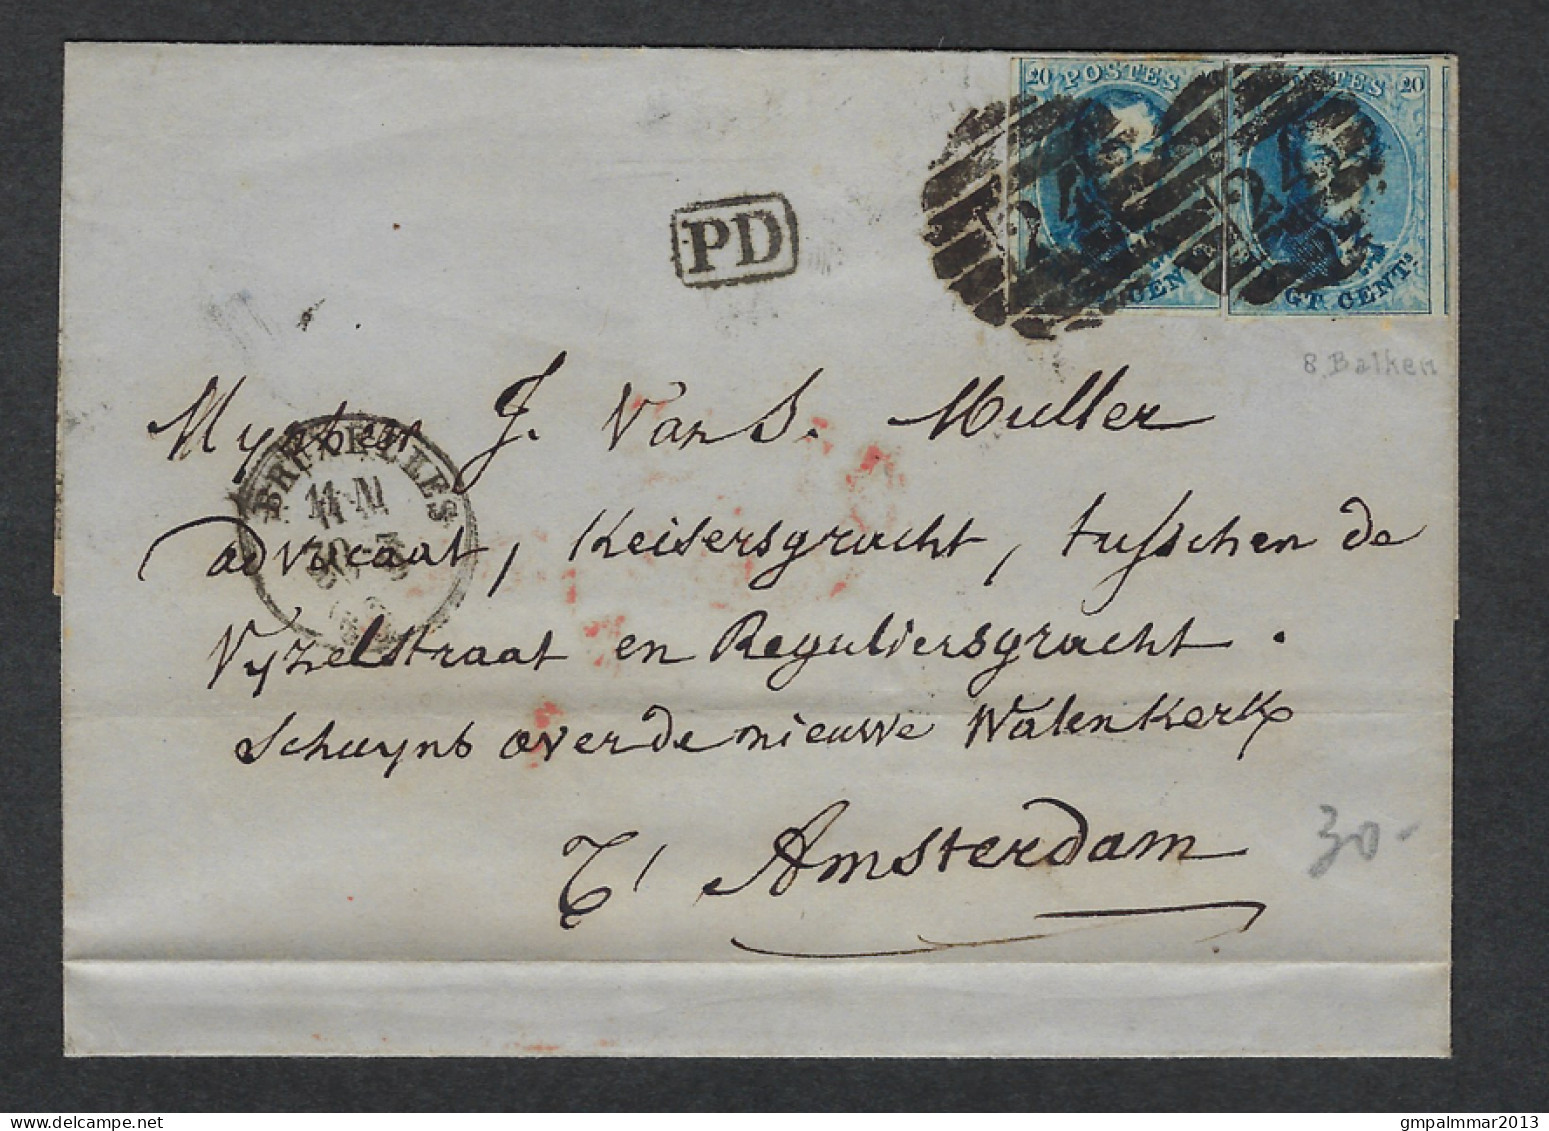 20 POSTES
POSTES 20
PD
24
24
GT. CENTS
8 Balken
Mynheer J. Van S. Muller
BRUXELLES
11-M
advocaat, Keisersgracht, tusschen de
Vyzelstraat en Reguliersgracht.
schuyns over de nieuwe Walenkerk
T' Amsterdam
30-
gmpalmmar2013